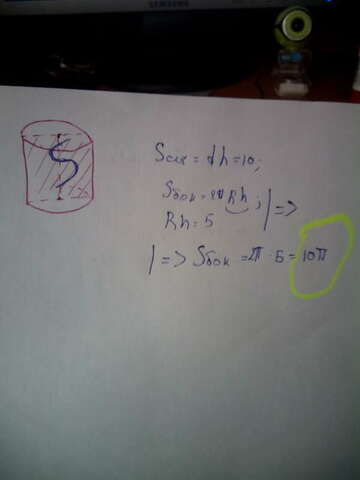 SAMSUNG
S
Sсеч = dh = 10;
Sбок = 2πRh ; | =>
Rh = 5
| => Sбок = 2π · 5 = 10π